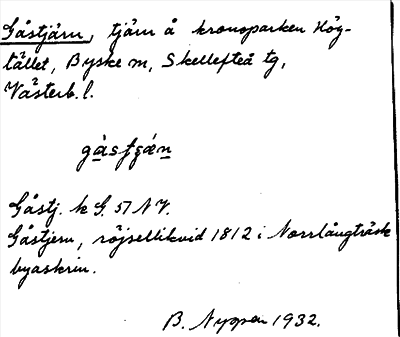 Gåstjärn, tjärn å kronoparken Hög-
tället, Byske sn, Skellefteå tg,
Västerb. l.
gåstjän
Gåstj. k G. 57 NV.
Gåstjern, röjsellikvid 1812 i Norrlångträsk
byaskrin.
B. Nyman 1932.